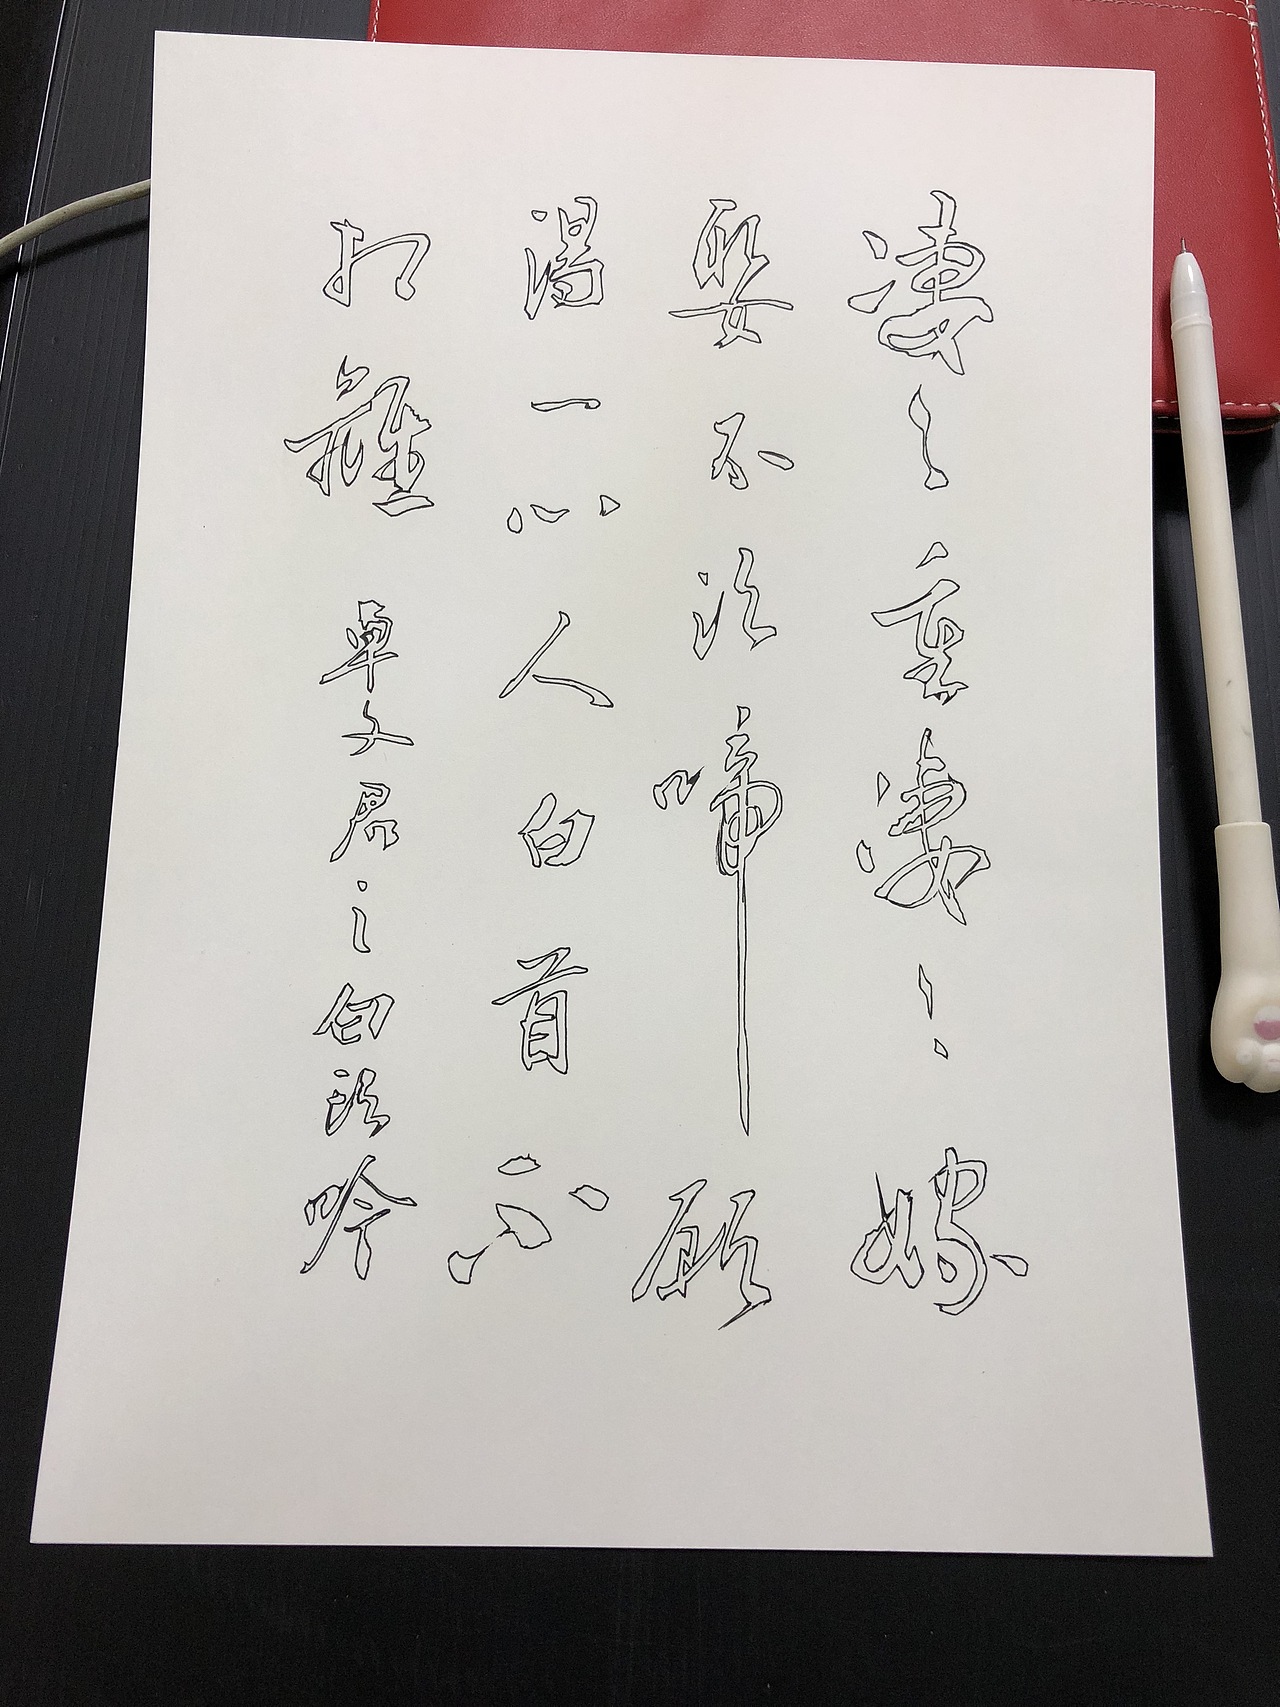 凄々重凄々嫁
娶不須啼願
得一心人白首不
相離 卓文君之白頭吟